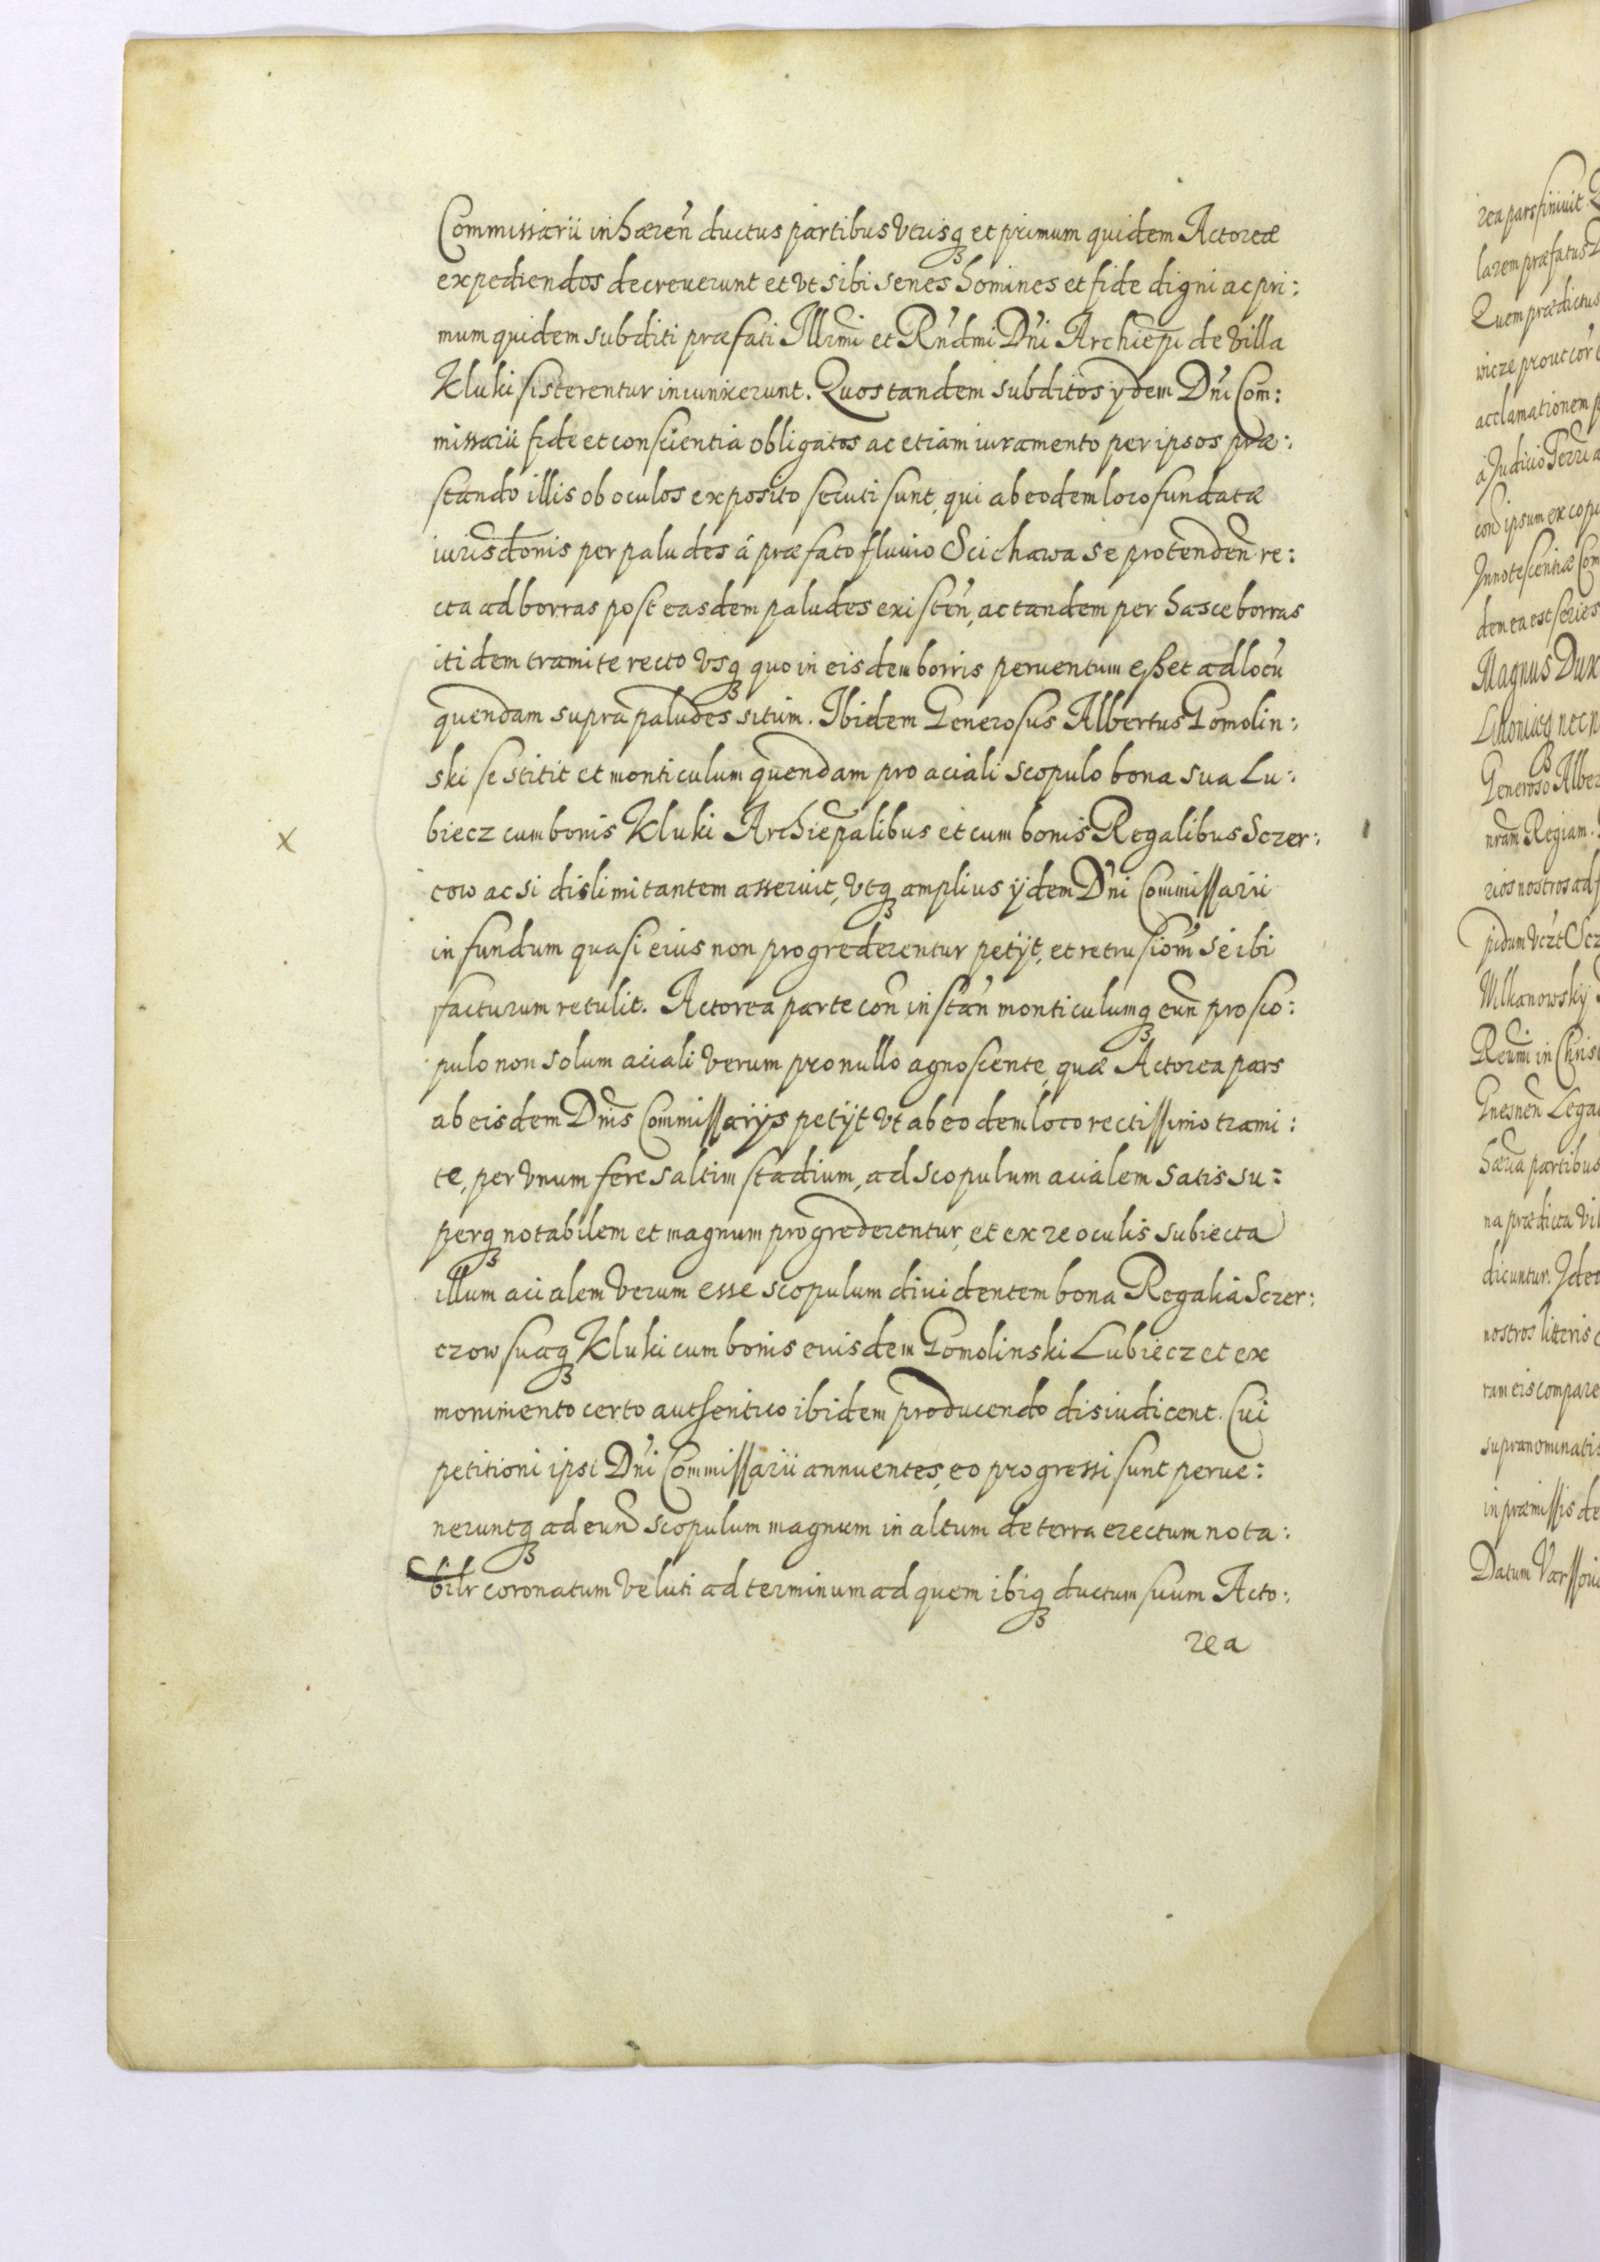 Commissarii inhæreñ ductus partibus vtrisqȝ et primum quidem Actoreæ
expediendos decreuerunt et vt sibi senes homines et fide digni ac pri:
mum quidem subditi præfati Illrmi et Rndmi Dñi Archiepi de villa
Kluki sisterentur iniunxerunt. Quos tandem subditos ÿdem Dñi Com:
missarii fide et conscientia obligatos ac etiam iuramento per ipsos præ:
stando illis ob oculos exposito secuti sunt, qui ab eodem loco fundatæ
iurisdtonis per paludes á præfato fluuio Scichawa se protendeñ re:
cta ad borras post easdem paludes existeñ, ac tandem per hasce borras
itidem tramite recto vsqȝ quo in eisdem borris peruentum esset ad locũ
quendam supra paludes situm. Ibidem Generosus Albertus Gomolin:
ski se stitit et monticulum quendam pro aciali scopulo bona sua Lu:
biecz cum bonis Kluki Archiepalibus et cum bonis Regalibus Sczer:
cow ac si dislimitantem asseruit, vtqȝ amplius ÿdem Dñi Commissarii
in fundum quasi eius non progrederentur petÿt, et retrusiom se ibi
facturum retulit. Actorea parte coñ instañ monticulumqȝ euñ pro sco:
pulo non solum aciali verum pro nullo agnoscente, quæ Actorea pars
ab eisdem Dnis Commissarÿs petÿt vt ab eodem loco rectissimo trami:
te, per vnum fere saltim stadium, ad scopulum acialem satis su:
perqȝ notabilem et magnum progrederentur, et ex re oculis subiecta
illum acialem verum esse scopulum diuidentem bona Regalia Sczer:
czow suaqȝ Kluki cum bonis euisdem Gomolinski Lubiecz et ex
monimento certo authentico ibidem producendo disiudicent. Cui
petitioni ipsi Dñi Commissarii annuentes, eo progressi sunt perue:
neruntqȝ ad eund scopulum magnum in altum de terra erectum nota:
bilr coronatum veluti ad terminum ad quem ibiqȝ ductum suum Acto:
rea
x
rea pars finiuit
larem præfatus
Quem prædictus
wicze prout cor
acclamationem
á Judicio Terri
ipsum ex
Innotescentiæ Com
dem ea est series
Magnus Dux
Generoso Alber
nram Regiam.
rios nostros ad
Wlkanowsky
in Chris
Gnesneñ Lega
partibus
na prædicta vil
dicuntur. Ideo
nostros litteris
rum eis compare
supranominatis
in præmissis de
Datum Varssoui